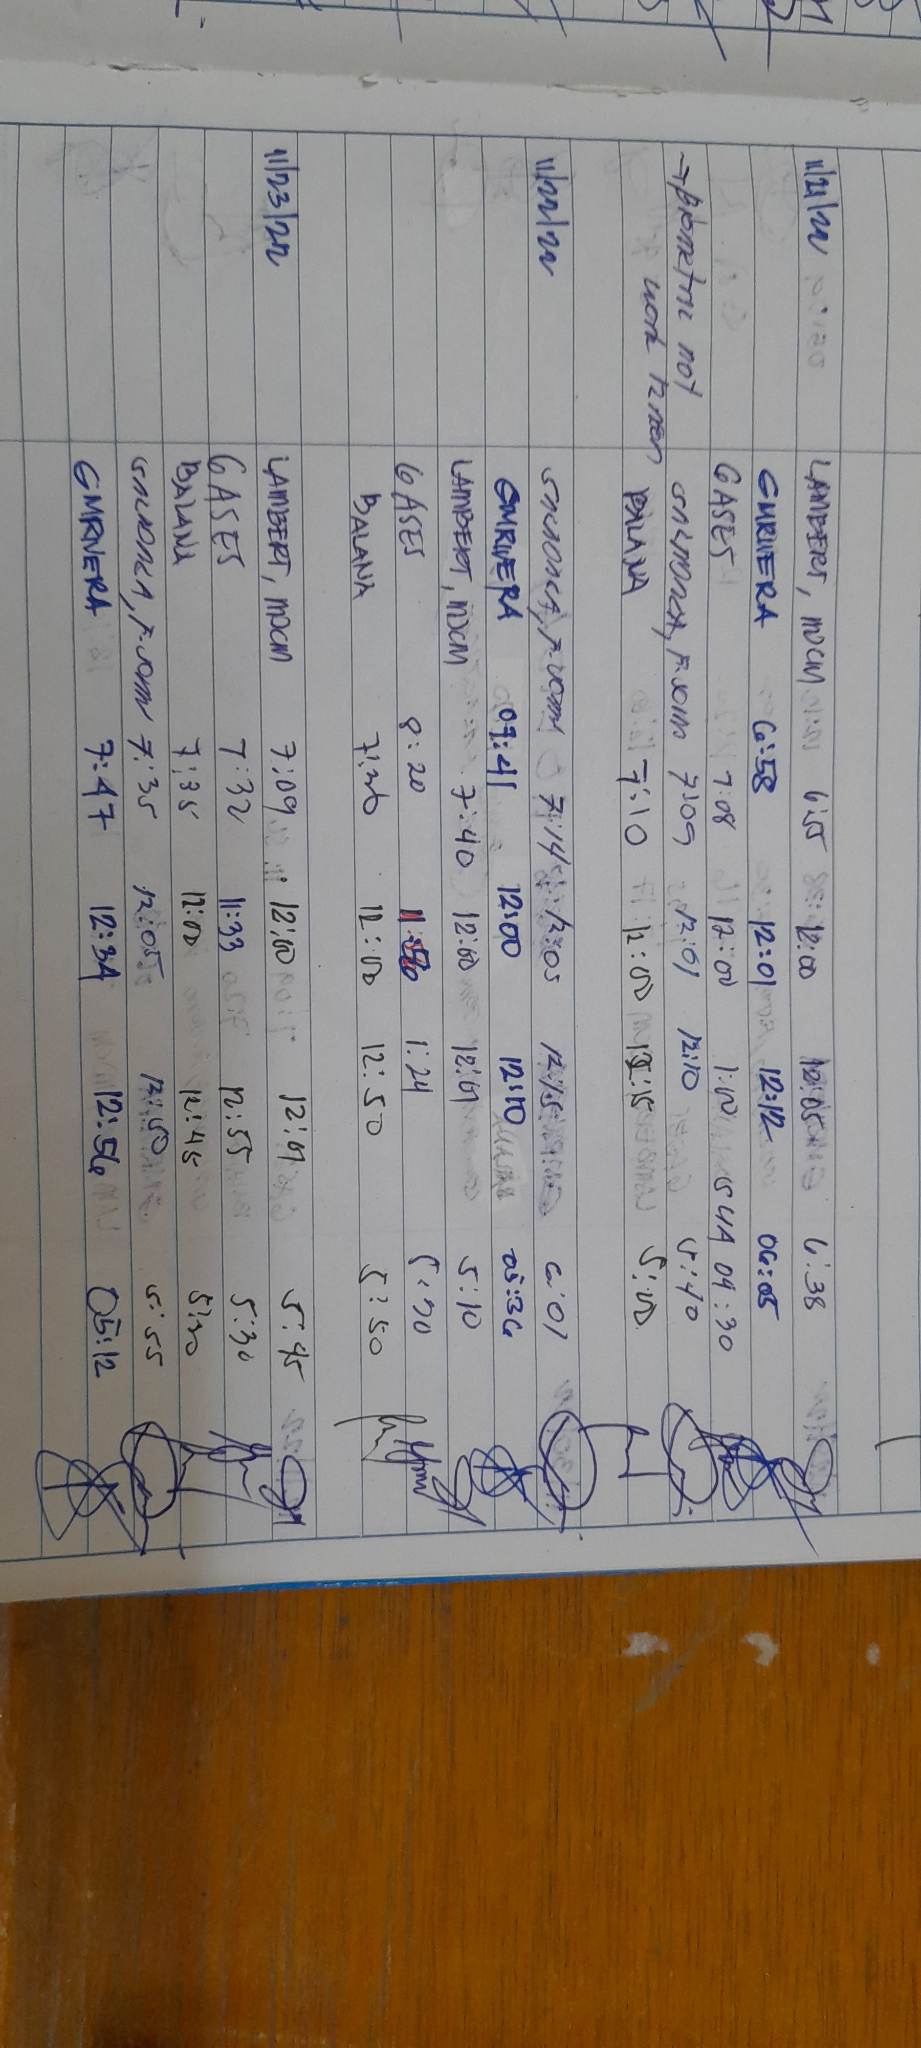 11/21/22 LAMBERT, MDCM 6:55 12:00 12:05 6:38
GMRIVERA 6:58 12:01 12:12 06:05
GASES 7:08 12:00 1:00 04:30
→ biometric not 7:09 12:01 12:10 5:40
work BALANA 7:10 12:00 12:15 5:00
11/22/22 7:14 12:05 12:15 6:01
GMRIVERA 07:41 12:00 12:10 05:36
LAMBERT, MDCM 7:40 12:00 12:01 5:10
GASES 8:20 1:24 5:30
BALANA 7:26 12:00 12:50 5:50
11/23/22 LAMBERT, MDCM 7:09 12:00 12:01 5:45
GASES 7:32 11:33 12:55 5:30
BALANA 7:35 12:00 12:45 5:30
7:35 12:05 12:50 5:55
GMRIVERA 7:47 12:34 12:56 05:12